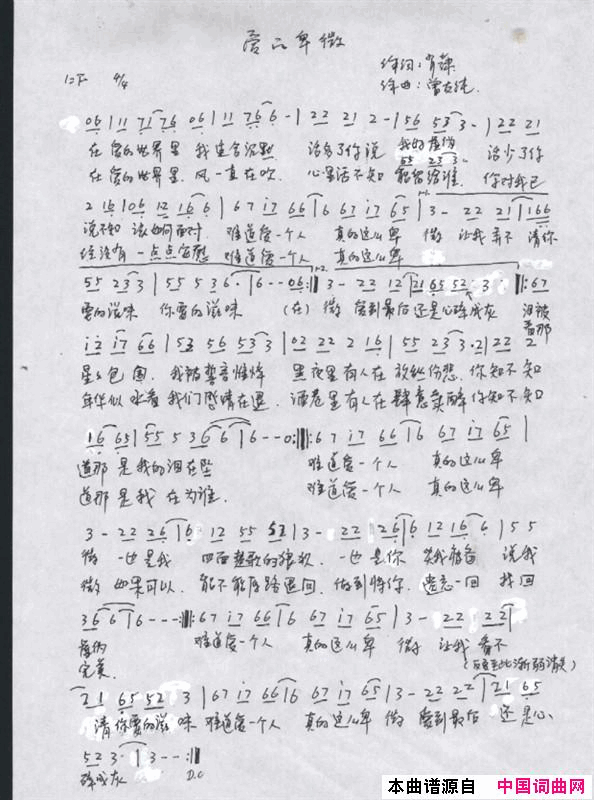 爱の卑微
作词:肖薇
作曲:曾志纯
1=F 4/4
06 | 11 71 76 06 | 11 76 6 - | 22 21 2 - | 56 53 3 - | 22 21
在爱的世界里 我生舍沉默 话多了你说 我的虚伪 话少了你
在爱的世界里 风一直在吹 心里话不知 能留给谁 你对我已
2 16 | 06 12 16 6 | 67 17 66 | 6 67 17 65 | 3 - 22 21 | 166
说不知 该如何面对 难道爱一个人 真的这么卑 微 让我弄不清你
经没有 一点点安慰 难道爱一个人 真的这么卑
55 23 3 | 55 5 36 · | 6 - - 06 :|| 3 - 22 12 | 21 65 52 3 || : 67
要的滋味 你要的滋味 (在) 微 爱到最后还是心碎成灰 泪被
看那
12 17 66 | 53 56 53 3 | 02 22 2 16 | 55 23 3·2 | 22 2
星星包围 我被声音惟悴 黑夜里有人在放纵伤悲 你知不知
年华似水着 我们感情在退 酒巷里有人在肆意卖醉 你知不知
16 65 | 55 5 36 6 | 6 - - 0 :|| : 67 17 66 | 6 67 17 65 |
道那是我的泪在坠 难道爱一个人 真的这么卑
道那是我在为谁 难道爱一个人 真的这么卑
3 - 22 26 | 6 12 55 52 | 3 - 22 26 | 6 12 16 6 | 55
微 也是我 四面楚歌的狼狈 也是你 说我
微 如果可以 能不能原路退回 做到将你 遗忘一回 找回
36 6 | 6 - - - :|| : 67 17 66 | 6 67 17 65 | 3 - 22 22
虚伪 难道爱一个人 真的这么卑 微 让我看不
完美 (反复至此渐弱消失)
21 65 52 3 | 67 17 66 | 6 67 17 65 | 3 - 22 22 | 21 65
清你要的滋味 难道爱一个人 真的这么卑 微 爱到最后 还是心
52 3 · | 3 - - :||
碎成灰 D.C
本曲谱源自 中国词曲网